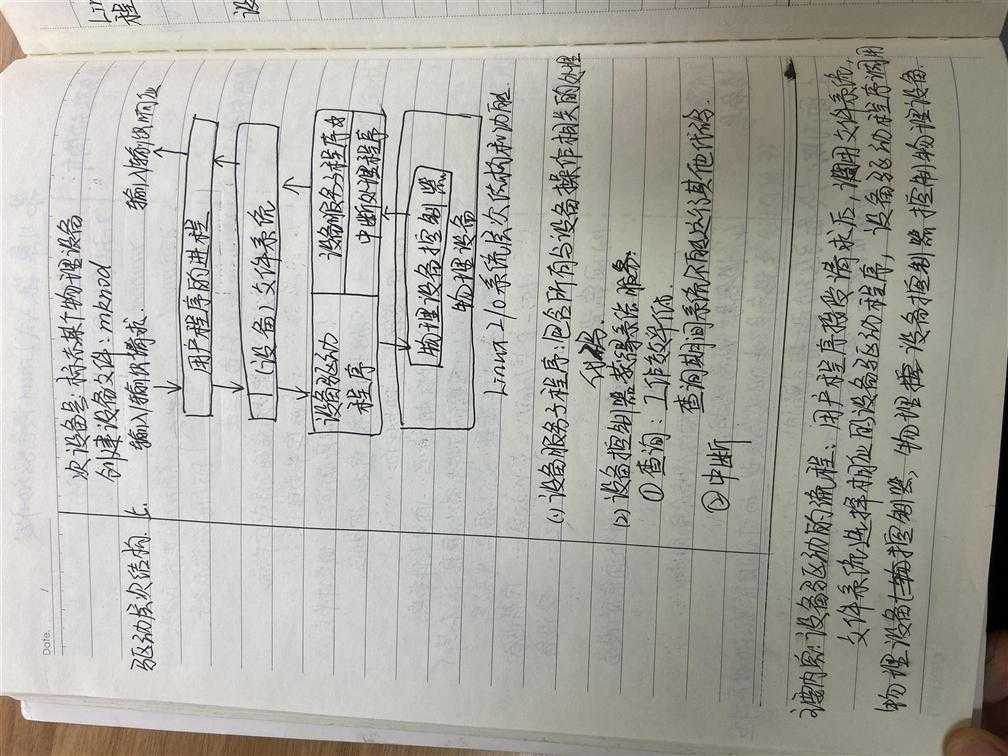 Date.
次设备号:标示某个物理设备
创建设备文件:mknod
驱动层次结构
输入/输出请求 输入/输出响应
用户程序的进程
(设备)文件系统
设备驱动程序
设备服务子程序
中断处理程序
物理设备控制器
物理设备
Linux I/O系统层次结构和功能.
(1)设备服务子程序:包含所有与设备操作相关的处理
代码
(2)设备控制器
①查询:工作效率低
查询期间系统不能运行其他代码.
②中断
设备驱动的流程:用户程序接收请求后,调用文件系统,
文件系统选择相应的设备驱动程序,设备驱动程序调用
物理设备控制器,物理设备控制器控制物理设备.